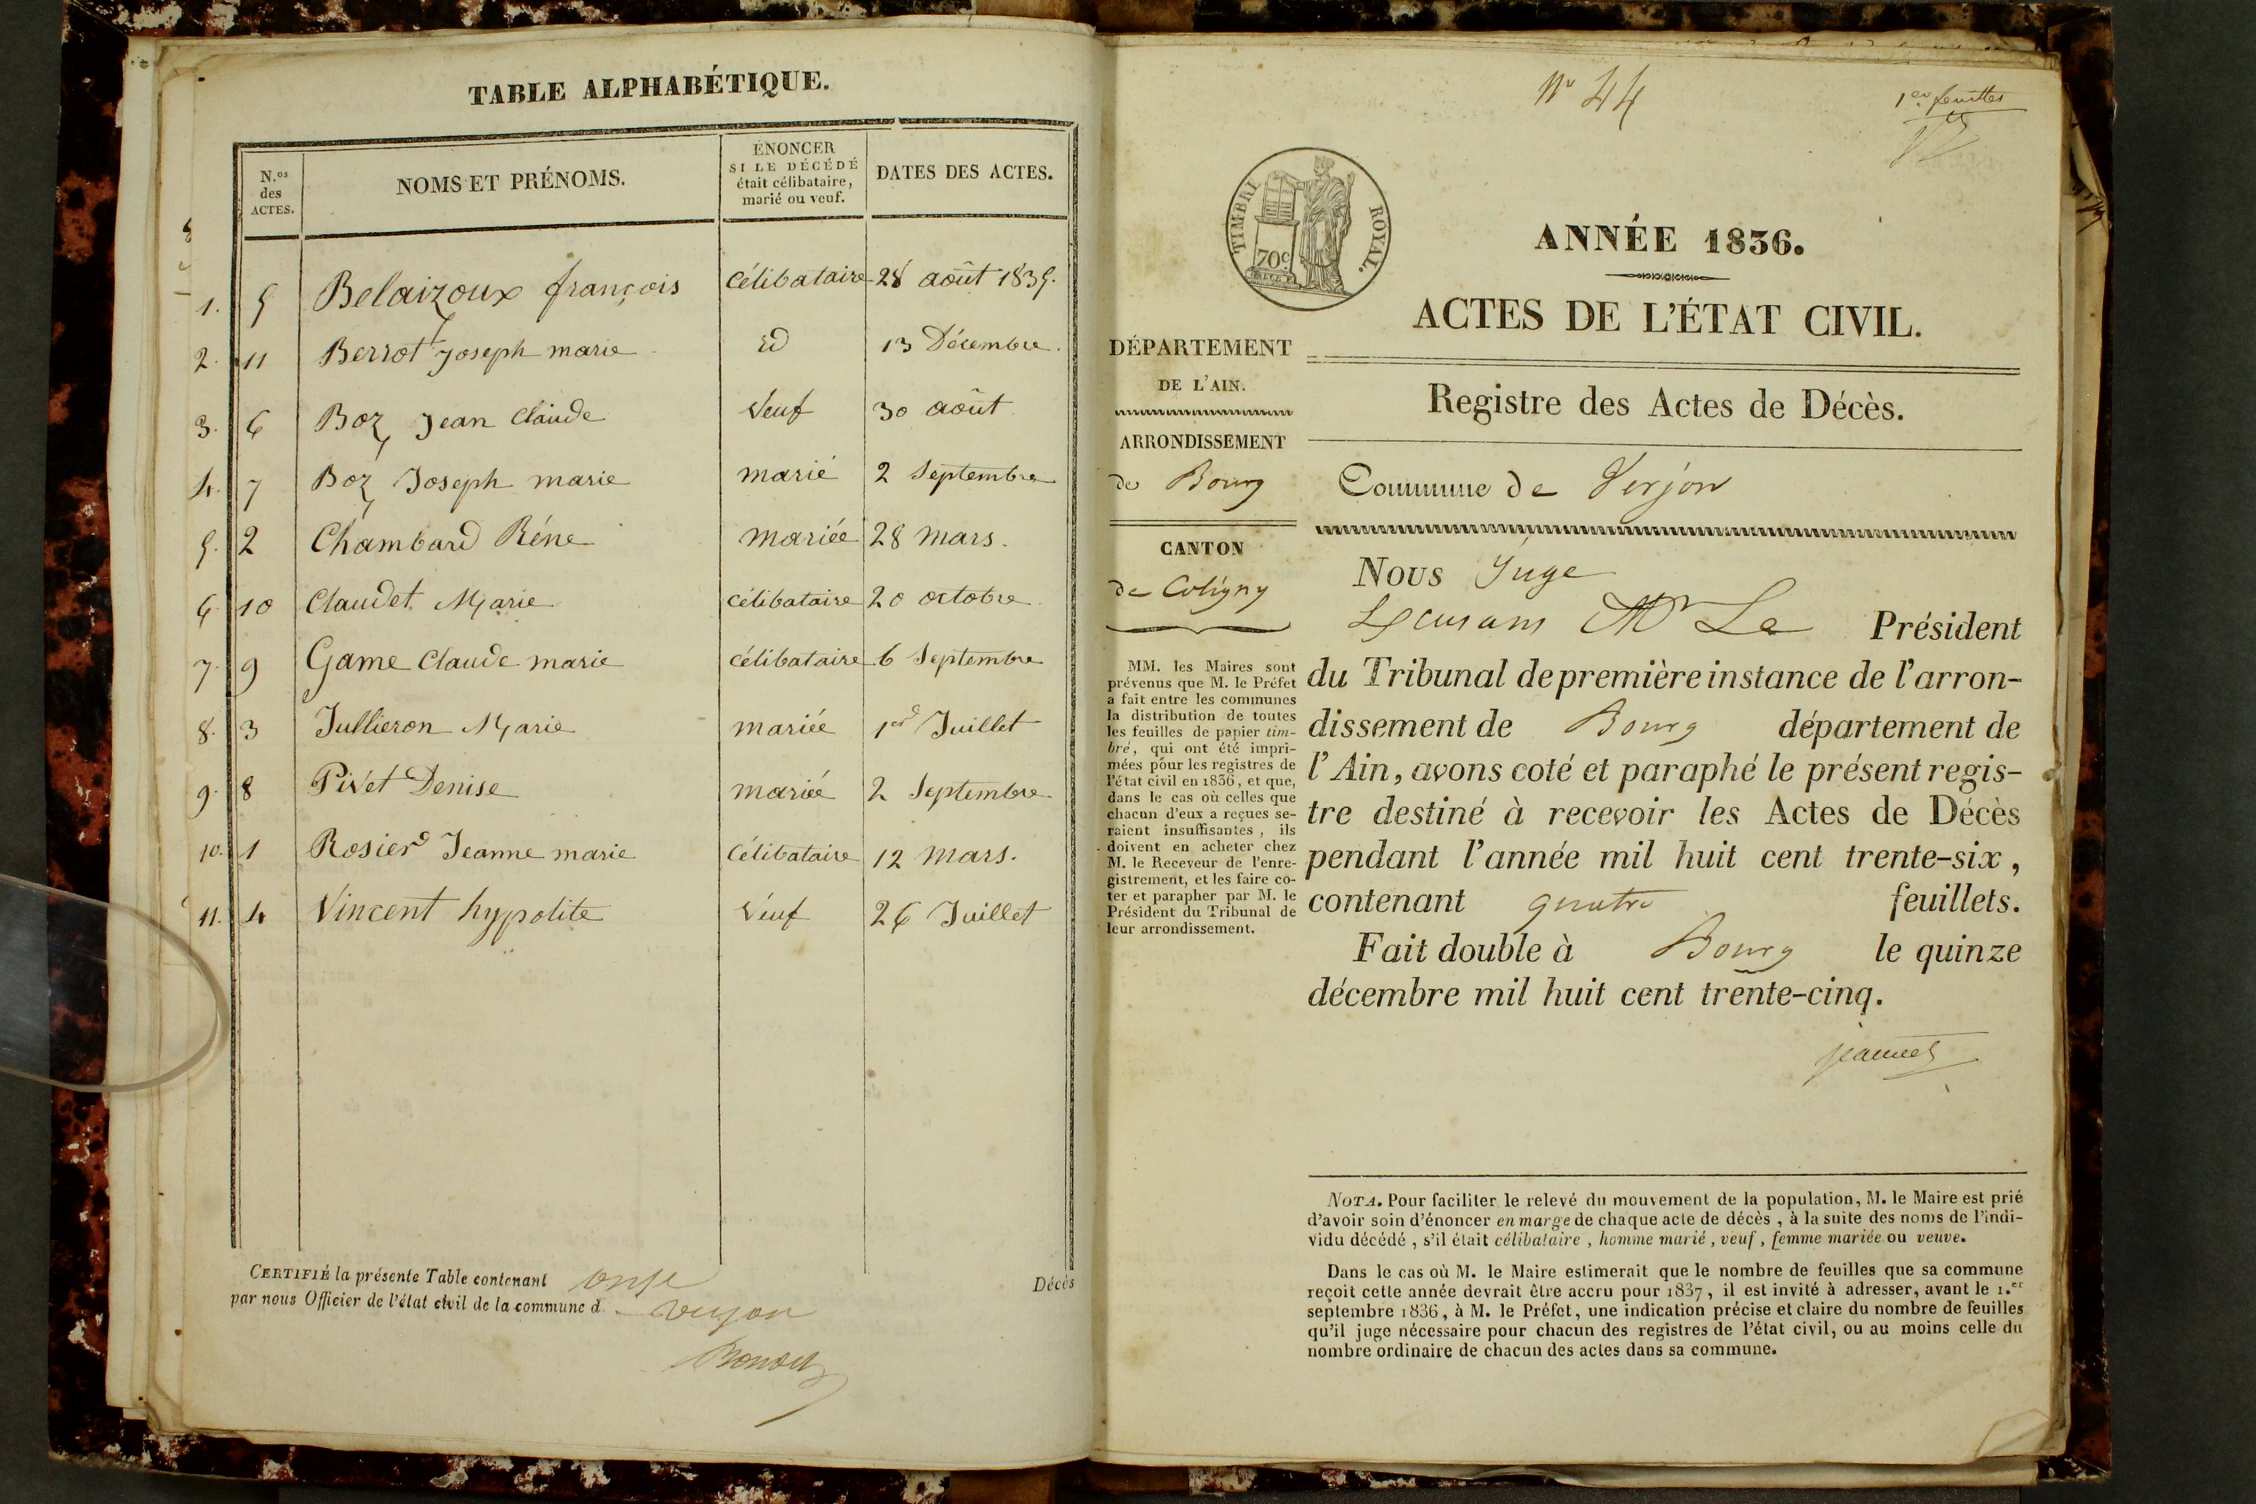 TABLE ALPHABÉTIQUE.
N.os des ACTES.
NOMS ET PRÉNOMS.
ÉNONCER SI LE DÉCÉDÉ était célibataire, marié ou veuf.
DATES DES ACTES.
1. 5 Belaizoux françois célibataire 28 août 1835.
2. 11 Berrot Joseph marie id 13 Décembre.
3. 6 Boz Jean Claude Veuf 30 août
4. 7 Boz Joseph marie marié 2 Septembre
5. 2 Chambard Réne mariée 28 mars.
6. 10 Claudet Marie célibataire 20 octobre
7. 9 Game Claude marie célibataire 6 Septembre
8. 3 Jullieron Marie mariée 1er Juillet
9. 8 Pivet Denise mariée 2 Septembre
10. 1 Rosier Jeanne marie célibataire 12 mars.
11. 4 Vincent hypolite Veuf 26 Juillet
CERTIFIÉ la présente Table contenant onze Décès
par nous Officier de l'état civil de la commune d verjon
N° 44
1er feuillet
TIMBRE ROYAL.
70c
ANNÉE 1836.
ACTES DE L'ÉTAT CIVIL.
Registre des Actes de Décès.
Commune de Verjon
DÉPARTEMENT
DE L'AIN.
ARRONDISSEMENT
de Bourg
CANTON
de Coligny
MM. les Maires sont
prévenus que M. le Préfet
a fait entre les communes
la distribution de toutes
les feuilles de papier tim-
bré, qui ont été impri-
mées pour les registres de
l'état civil en 1836, et que,
dans le cas où celles que
chacun d'eux a reçues se-
raient insuffisantes, ils
doivent en acheter chez
M. le Receveur de l'enre-
gistrement, et les faire co-
ter et parapher par M. le
Président du Tribunal de
leur arrondissement.
Nous Juge
Mr Le Président
du Tribunal de première instance de l'arron-
dissement de Bourg département de
l'Ain, avons coté et paraphé le présent regis-
tre destiné à recevoir les Actes de Décès
pendant l'année mil huit cent trente-six,
contenant quatre feuillets.
Fait double à Bourg le quinze
décembre mil huit cent trente-cinq.
NOTA. Pour faciliter le relevé du mouvement de la population, M. le Maire est prié
d'avoir soin d'énoncer en marge de chaque acte de décès, à la suite des noms de l'indi-
vidu décédé, s'il était célibataire, homme marié, veuf, femme mariée ou veuve.
Dans le cas où M. le Maire estimerait que le nombre de feuilles que sa commune
reçoit cette année devrait être accru pour 1837, il est invité à adresser, avant le 1.er
septembre 1836, à M. le Préfet, une indication précise et claire du nombre de feuilles
qu'il juge nécessaire pour chacun des registres de l'état civil, ou au moins celle du
nombre ordinaire de chacun des actes dans sa commune.